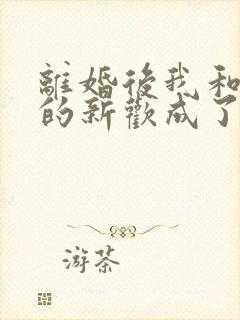 離婚後我和
的新歡成了
游茶